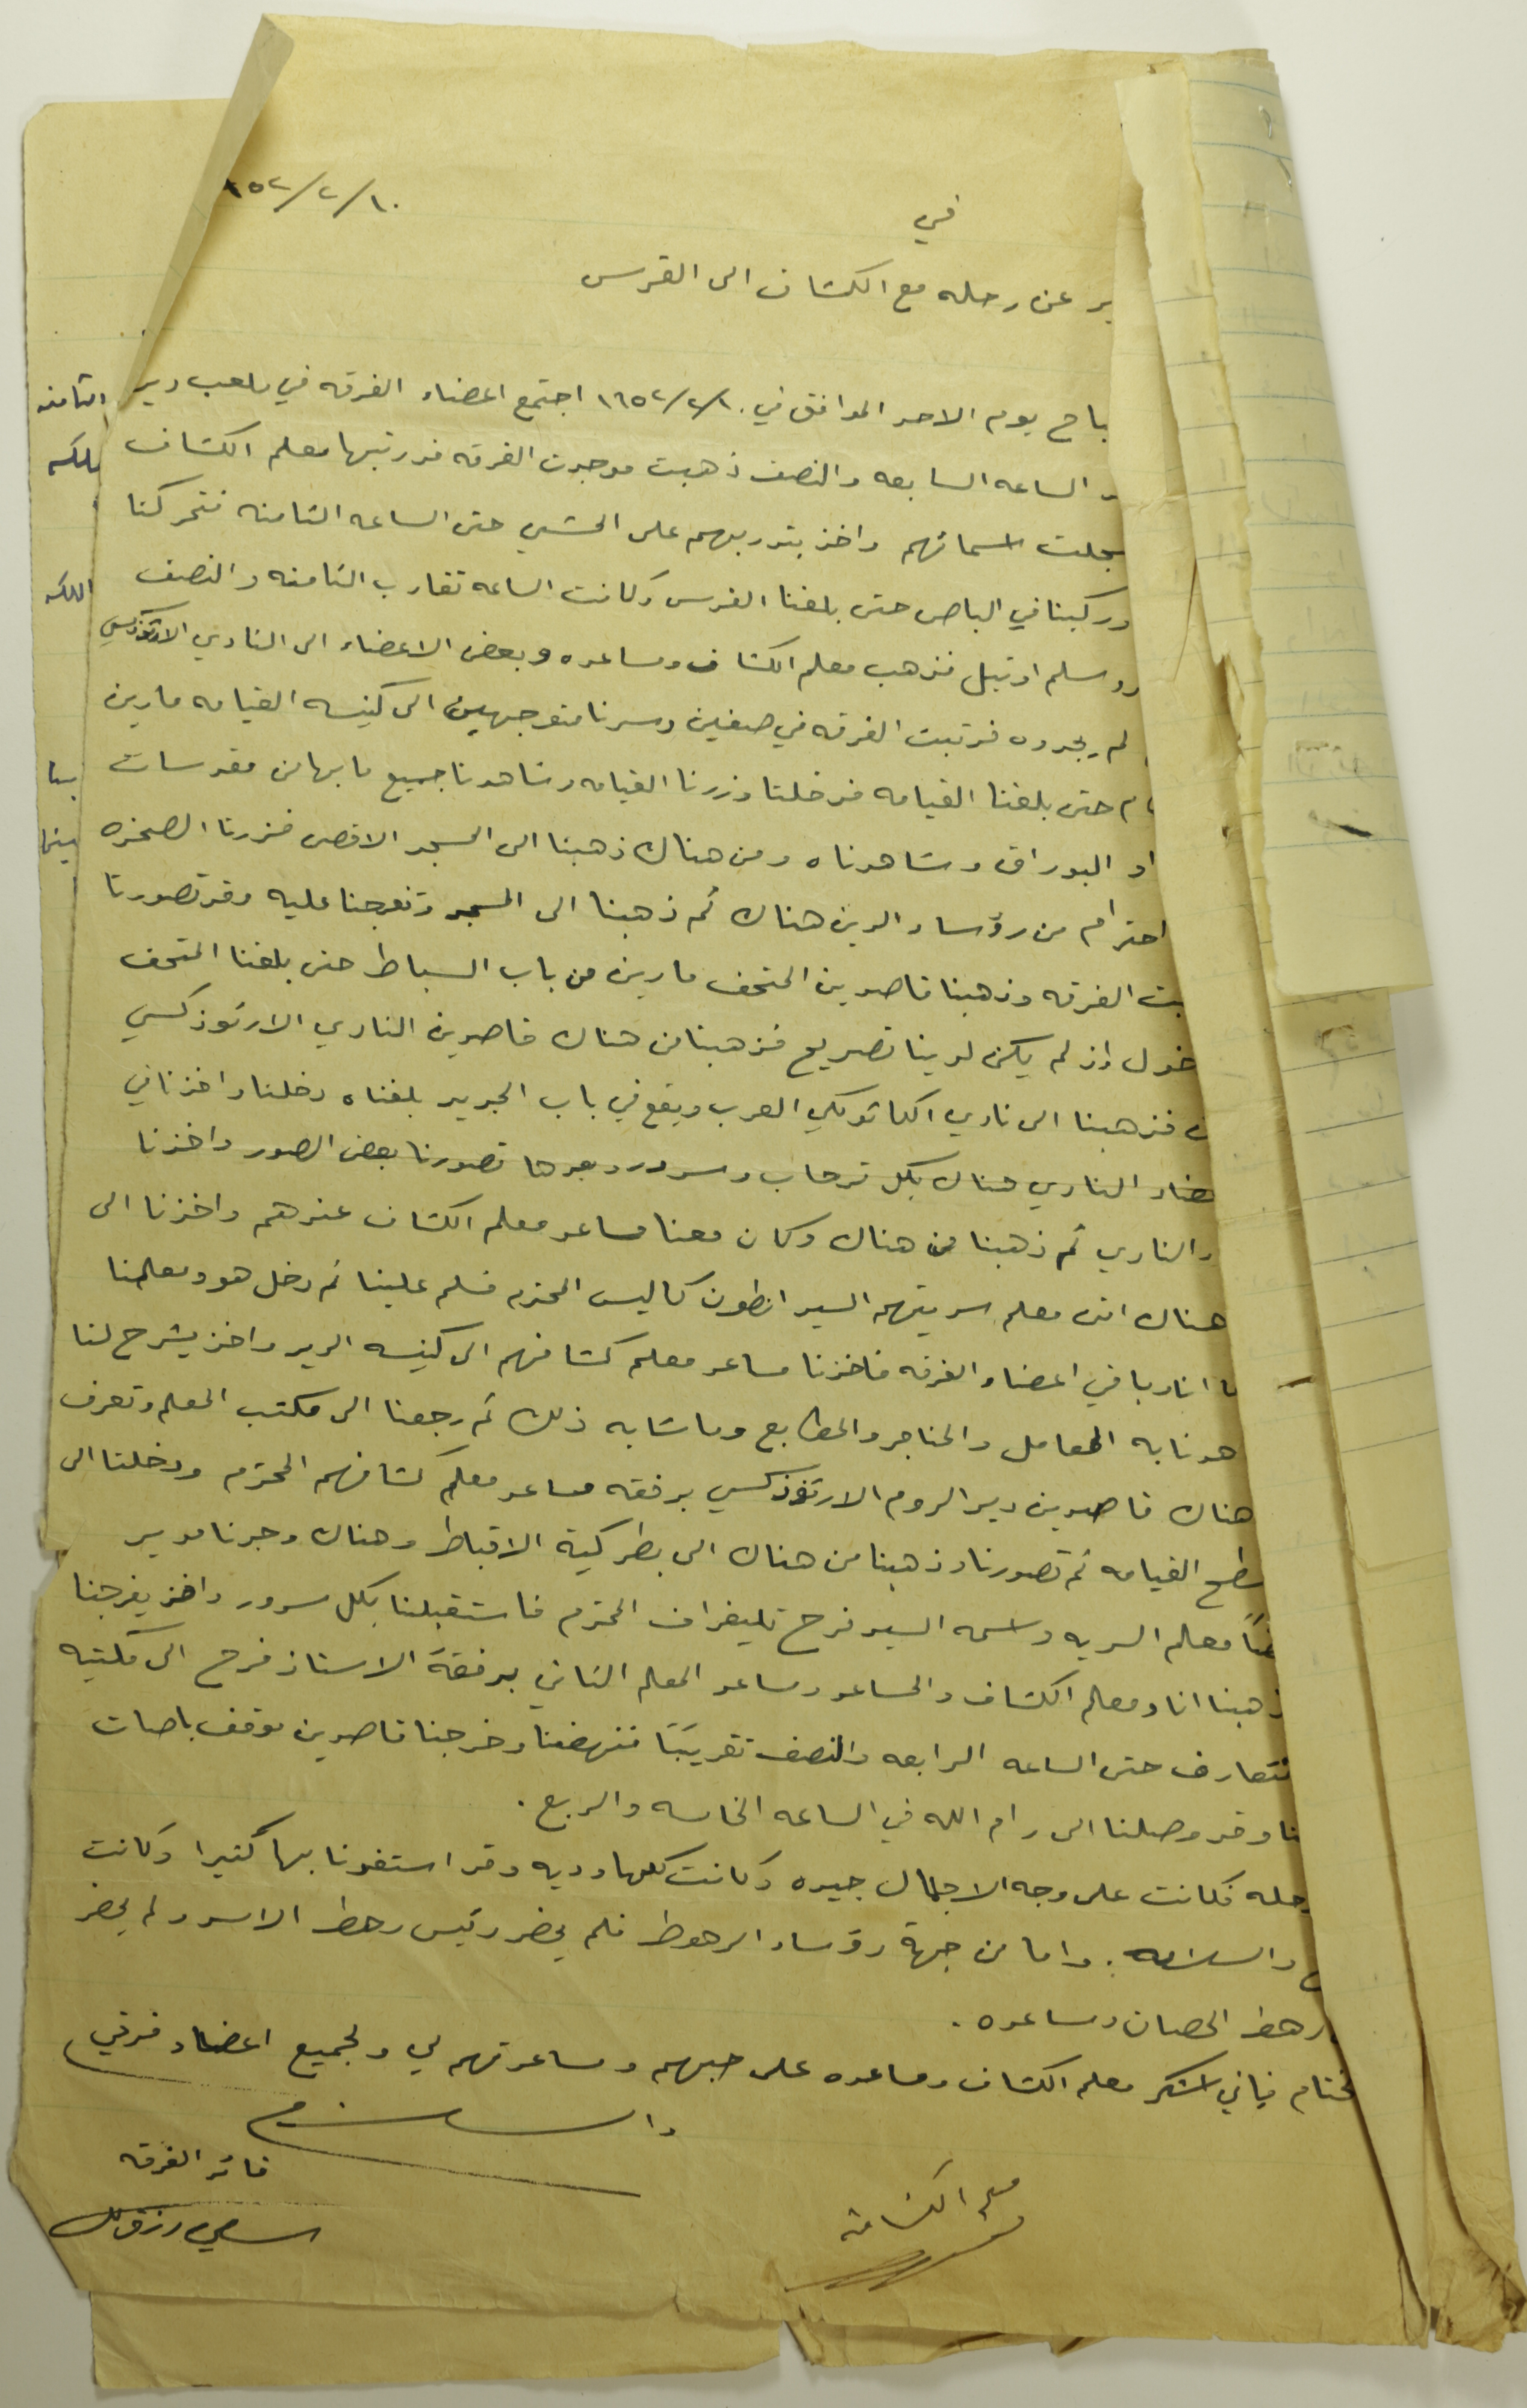 في ١٠/٢/٩٥٢
ير عن رحله مع الكشاف الى القدس
باح يوم الاحد الموافق في ١٩٥٢/٢/١٠ اجتمع اعضاء الفرقه في ملعب دير
الساعه السابعه والنصف ذهبت فوجدت الفرقه قد رتبها معلم الكشاف
سجلت اسمائهم واخذ بتدريبهم على المشي حتى الساعه الثامنه فتحركنا
وركبنا في الباص حتى بلغنا القدس وكانت الساعه تقارب الثامنه والنصف
روسلم اوتيل فذهب معلم الكشاف ومساعده وبعض الاعضاء الى النادي الارثوذكسي
لم يجدوه فرتبت الفرقه في صفين وسرنا متوجهين الى كنيسه القيامه مارين
ام حتى بلغنا القيامه فدخلنا وزرنا القيامه وشاهدنا جميع ما بها من مقدسات
او البوراق وشاهدناه ومن هناك ذهبنا الى المسجد الاقصى فزرنا الصخره
احترام من رؤساء الدين هناك ثم ذهبنا الى المسجد وتفرجنا عليه وقد تصورنا
بت الفرقه وذهبنا قاصدين المتحف مارين من باب السباط حتى بلغنا المتحف
خول اذ لم يكن لدينا تصريح فذهبنا من هناك قاصدين النادي الارثوذكسي
ن فذهبنا الى نادي الكاثوليكي العرب ويقع في باب الجديد بلغناه دخلنا واخذنا في
عضاء النادي هناك بكل ترحاب وسرور وبعدها تصورنا بعض الصور واخذنا
والنادي ثم ذهبنا من هناك وكان معنا مساعد معلم الكشاف عندهم واخذنا الى
هناك اتى معلم سريتهم السيد انطون كاليس المحترم فسلم علينا ثم دخل هو ومعلمنا
ا انا وباقي اعضاء الفرقه فاخذنا مساعد معلم كشافهم الى كنيسه الدير واخذ يشرح لنا
هدنا به المعامل والمناجر والمطابع وما شابه ذلك ثم رجعنا الى مكتب المعلم وتعرف
هناك قاصدين دير الروم الارثوذكسي برفقه مساعد معلم كشافهم المحترم ودخلنا الى
سطح القيامه ثم تصورنا وذهبنا من هناك الى بطركية الاقباط وهناك وجدنا مدير
ضاً معلم السريه واسمه السيد فرح تليغراف المحترم فاستقبلنا بكل سرور واخذ يفرجنا
ذهبنا انا ومعلم الكشاف والمساعد ومساعد المعلم الثاني برفقة الاستاذ فرح الى مكتبه
نتعارف حتى الساعه الرابعه والنصف تقريباً فنهضنا وخرجنا قاصدين موقف باصات
نا وقد وصلنا الى رام الله في الساعه الخامسه والربع .
رحله فكانت على وجه الاجمال جيده وكانت كلها وديه وقد استفدنا بها كثيرا وكانت
والسلامه . واما من جهة رؤساء الرهوط فلم يحضر رئيس رهط الاسد ولم يحضر
رهط الحصان ومساعده .
ختام فياني اشكر معلم الكشاف ومساعده على حبهم ومساعدتهم لي ولجميع اعضاء فرقتي
والسلام
قائد الفرقه
معلم الكشافه
الثامنه